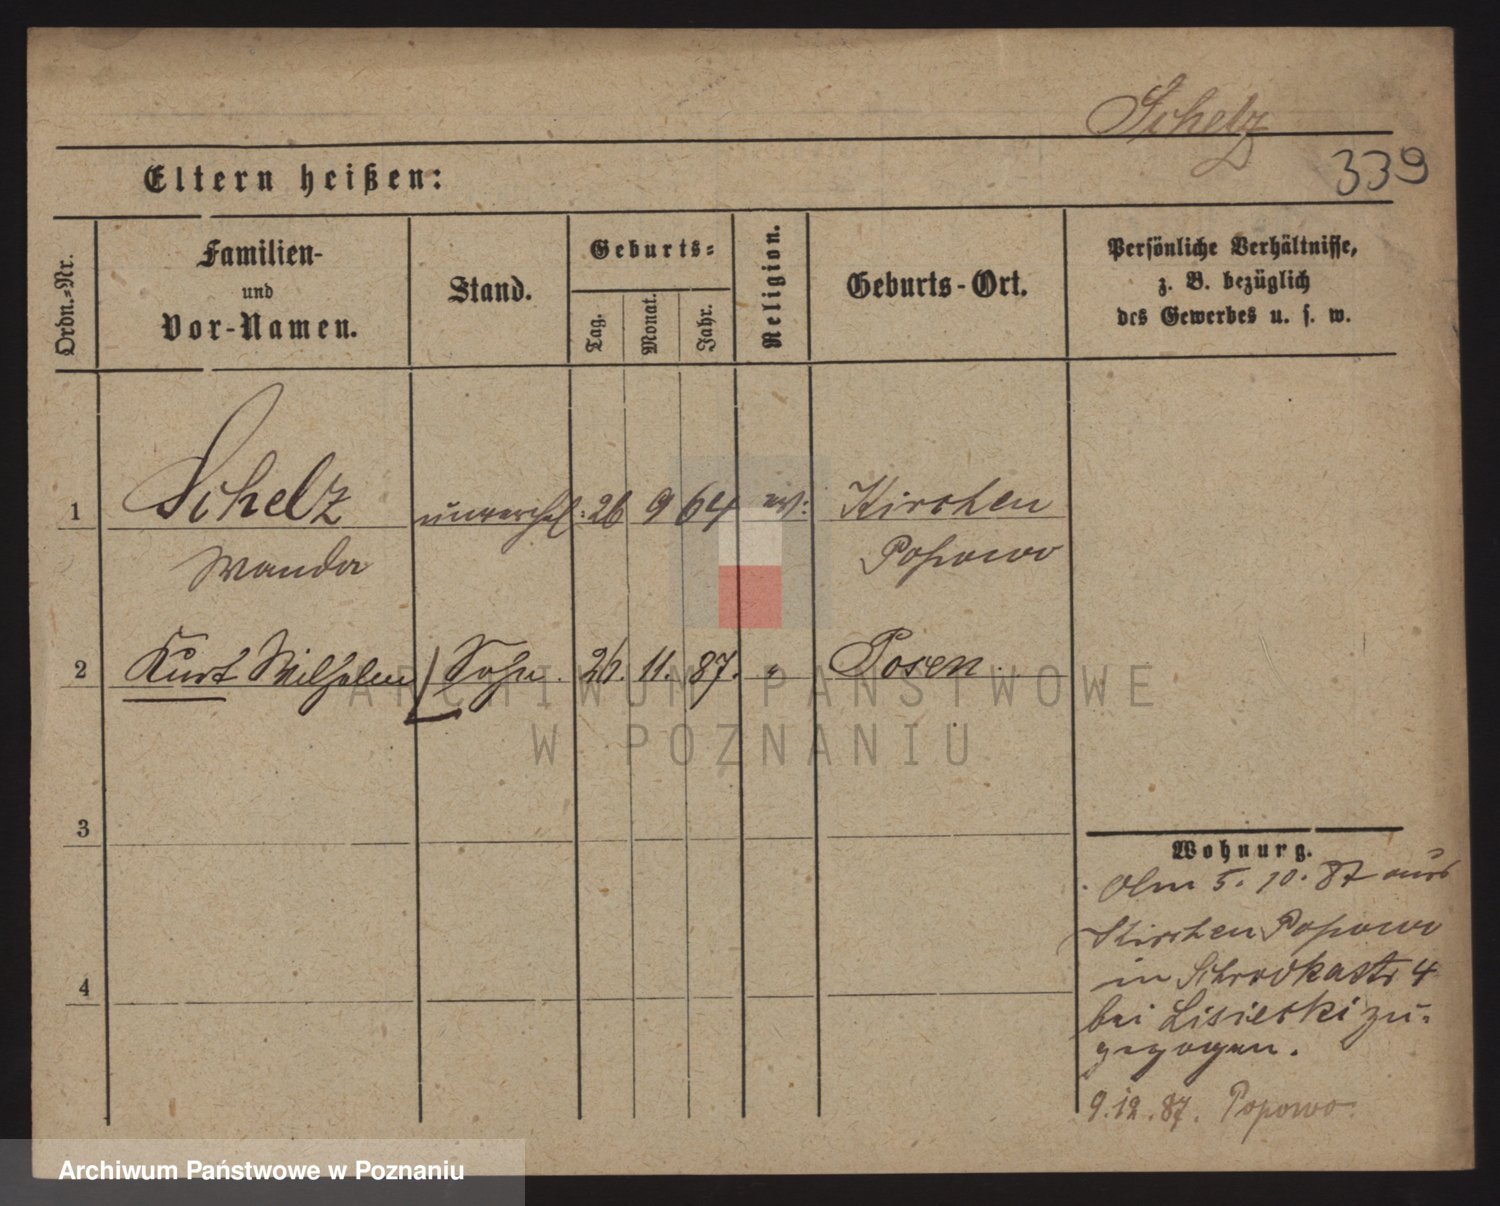 Schelz
339
Eltern heißen:
Ordn.-Nr.
Familien-
und
Vor-Namen.
Stand.
Geburts-
Tag.
Monat.
Jahr.
Religion.
Geburts-Ort.
Persönliche Verhältnisse,
z. B. bezüglich
des Gewerbes u. s. w.
1 Schelz unverehel. 26 9 64 ev: Kirchen
Wanda Popowo
2 Kurt Wilhelm Sohn. 26. 11. 87. " Posen.
3
4
Wohnung.
Am 5. 10. 87 aus
Kirchen Popowo
in Schrodkastr 4
bei Lisiecki zu-
gezogen.
9.12.87. Popowo.
ARCHIWUM PAŃSTWOWE
W POZNANIU
Archiwum Państwowe w Poznaniu